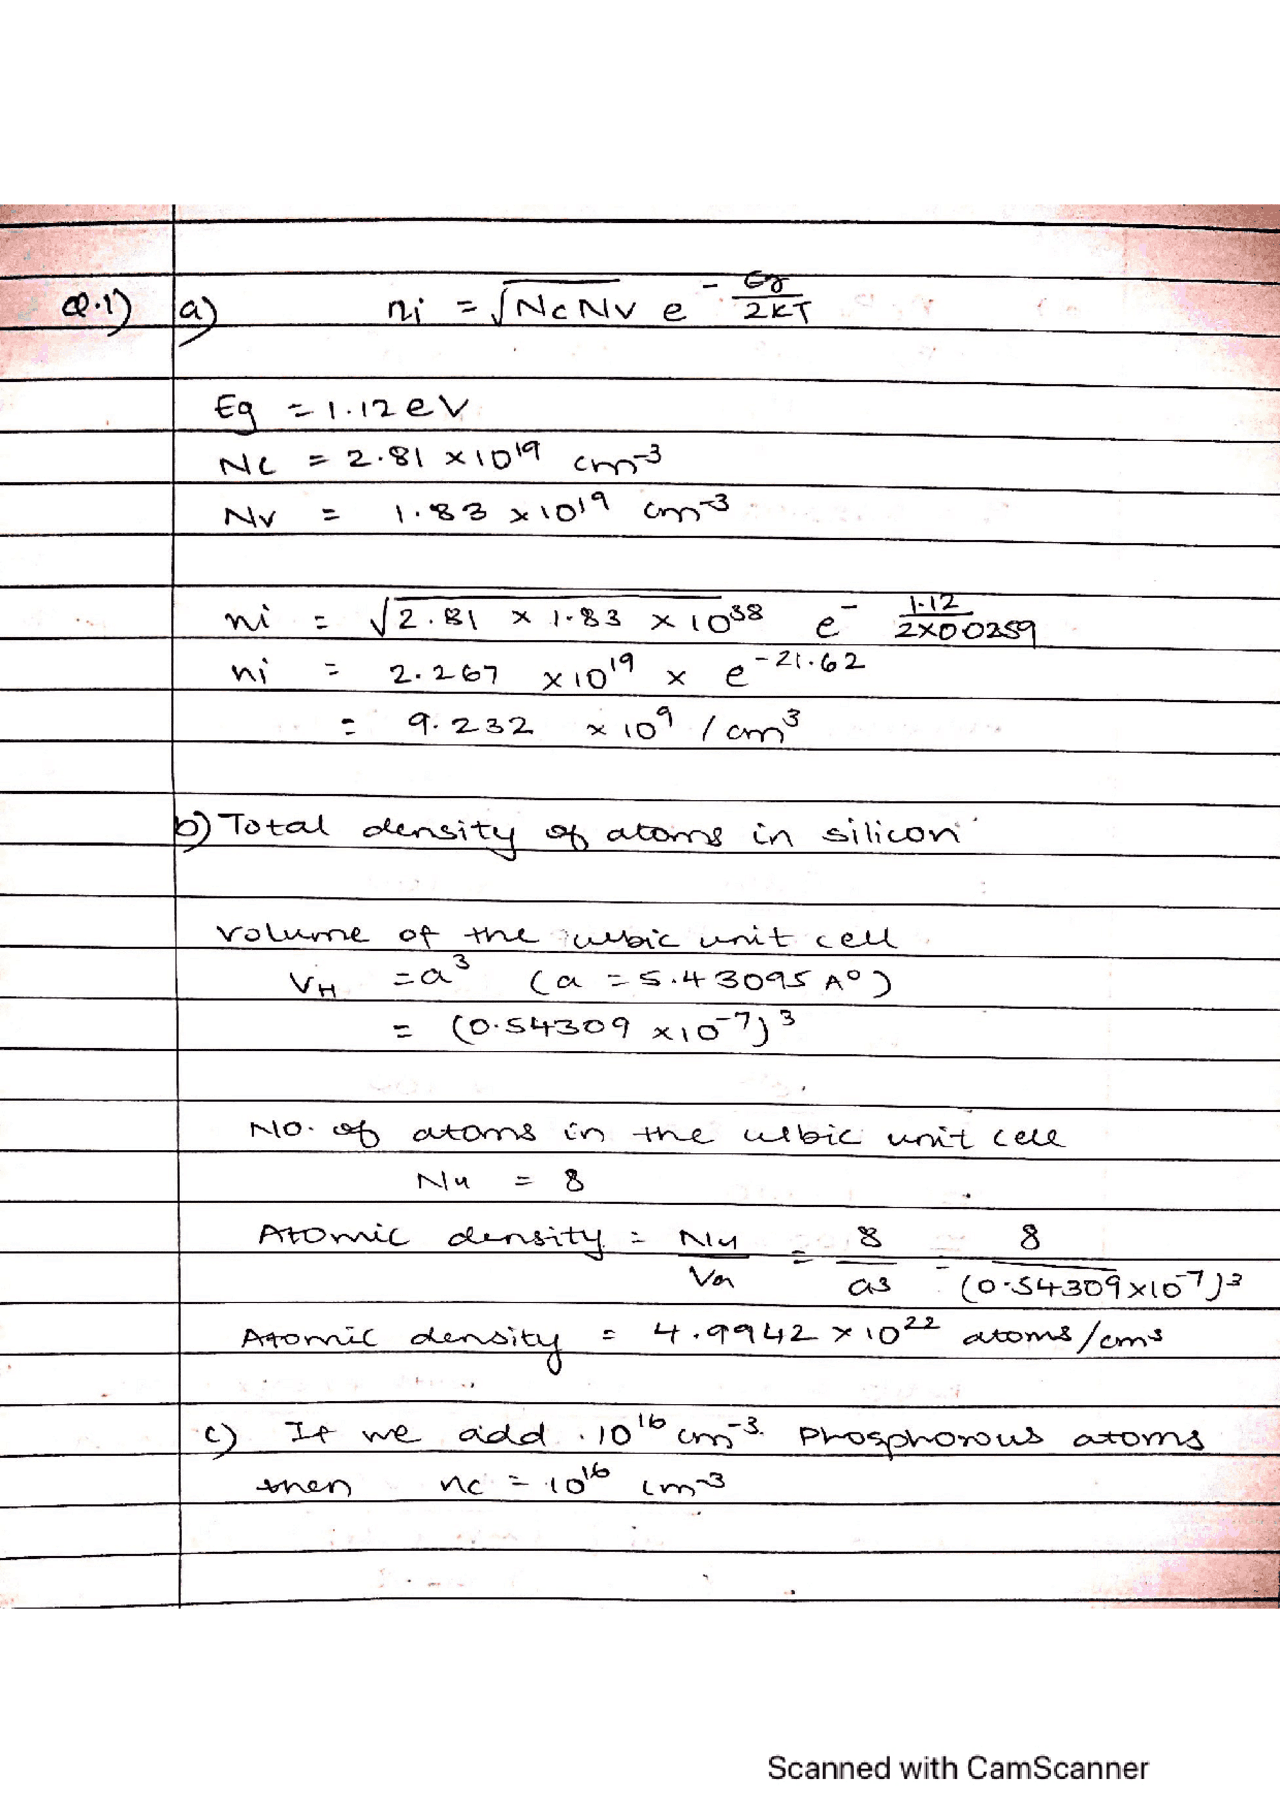 Q.1) a) ni = √NcNv e^-Eg/2KT
Eg = 1.12 eV
Nc = 2.81 × 10^19 cm^-3
Nv = 1.83 × 10^19 cm^-3
ni = √2.81 × 1.83 × 10^38 e^-1.12/2×0.0259
ni = 2.267 × 10^19 × e^-21.62
= 9.232 × 10^9 / cm^3
b) Total density of atoms in silicon
Volume of the cubic unit cell
VH = a^3 (a = 5.43095 A°)
= (0.54309 × 10^-7)^3
No. of atoms in the cubic unit cell
Nu = 8
Atomic density = Nu/Vu = 8/a3 = 8/(0.54309×10^-7)^3
Atomic density = 4.9942 × 10^22 atoms/cm3
c) If we add 10^16 cm^-3 Phosphorous atoms
then nc = 10^16 cm^-3
Scanned with CamScanner